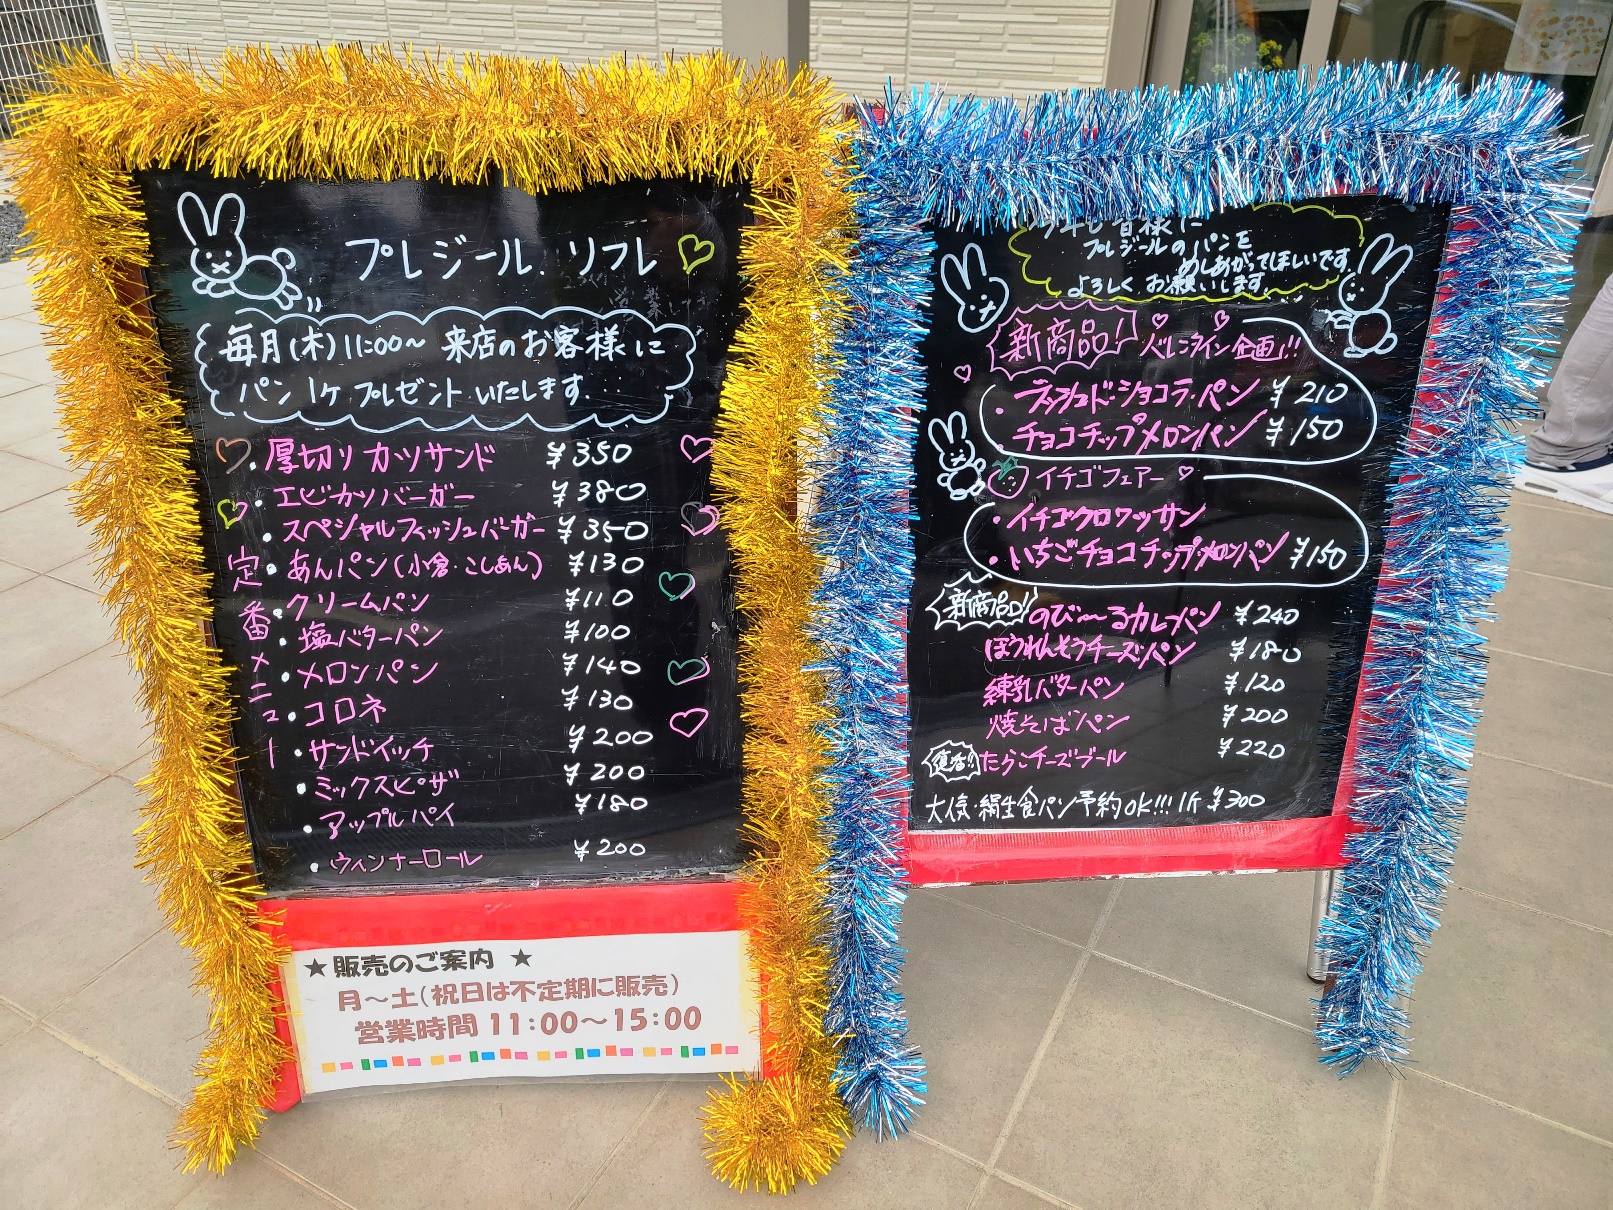 プレジール リフレ
毎月(木)11:00〜 来店のお客様に
パン1ケプレゼントいたします.
・厚切りカツサンド ¥350
・エビカツバーガー ¥380
・スペシャルフィッシュバーガー ¥350
定番メニュー
・あんパン(小倉・こしあん) ¥130
・クリームパン ¥110
・塩バターパン ¥100
・メロンパン ¥140
・コロネ ¥130
・サンドイッチ ¥200
・ミックスピザ ¥200
・アップルパイ ¥180
・ウィンナーロール ¥200
★販売のご案内 ★
月〜土(祝日は不定期に販売)
営業時間 11:00〜15:00
皆様に
プレジールのパンを
めしあがってほしいです
よろしくお願いします.
新商品! バレンタイン企画!!
・ショコラ・パン ¥210
・チョコチップメロンパン ¥150
イチゴフェアー
・イチゴクロワッサン
・いちごチョコチップメロンパン ¥150
新商品! のび〜るカレーパン ¥240
ほうれんそうチーズパン ¥180
練乳バターパン ¥120
焼そばパン ¥200
復活!! たらこチーズブール ¥220
大人気・絹生食パン予約OK!!! 1ケ ¥300